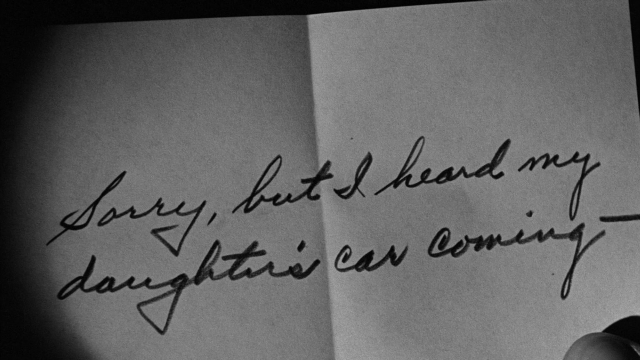 Sorry, but I heard my
daughter's car coming—